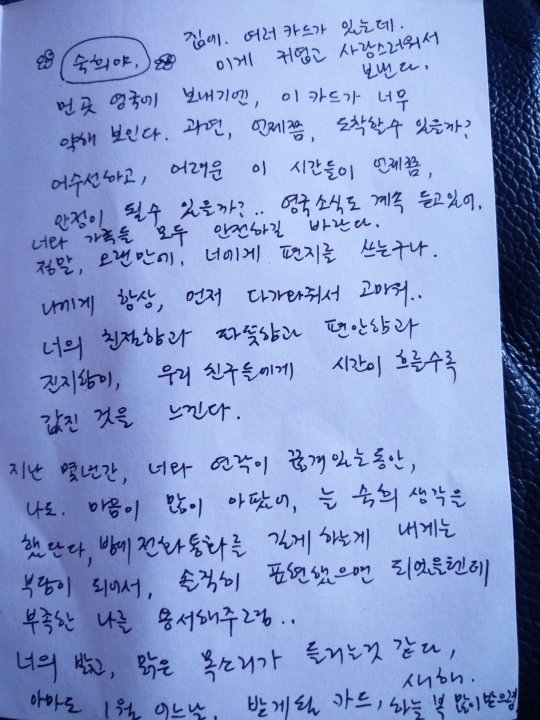 숙희야,
집에. 여러 카드가 있는데.
이게 귀엽고 사랑스러워서
보낸다.
먼곳 영국에 보내기엔, 이 카드가 너무
약해 보인다. 과연, 언제쯤, 도착할수 있을까?
어수선하고, 어려운 이 시간들이 언제쯤,
안정이 될수 있을까?.. 영국소식도 계속 듣고있어,
너와 가족들 모두 안전하길 바란다.
정말, 오랜만에, 너에게 편지를 쓰는구나.
나에게 항상, 먼저 다가와줘서 고마워..
너의 친절함과 따뜻함과 편안함과
진지함이, 우리 친구들에게 시간이 흐를수록
값진 것을 느낀다.
지난 몇년간, 너와 연락이 끊겨있는동안,
나도. 마음이 많이 아팠어, 늘 숙희 생각을
했단다, 밤에 전화통화를 길게 하는게 내게는
부담이 되어서, 솔직히 표현했으면 되었을텐데
부족한 나를 용서해주그럼..
너의 밝고, 맑은 목소리가 들리는것 같다,
아마도 1월 어느날, 받게될 카드, 새해.
하늘 복 많이받으렴